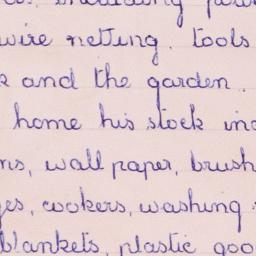 including
wire netting. tools
and the garden.
home his stock inc
ns, wall paper, brush
es, cookers, washing
blankets, plastic goo